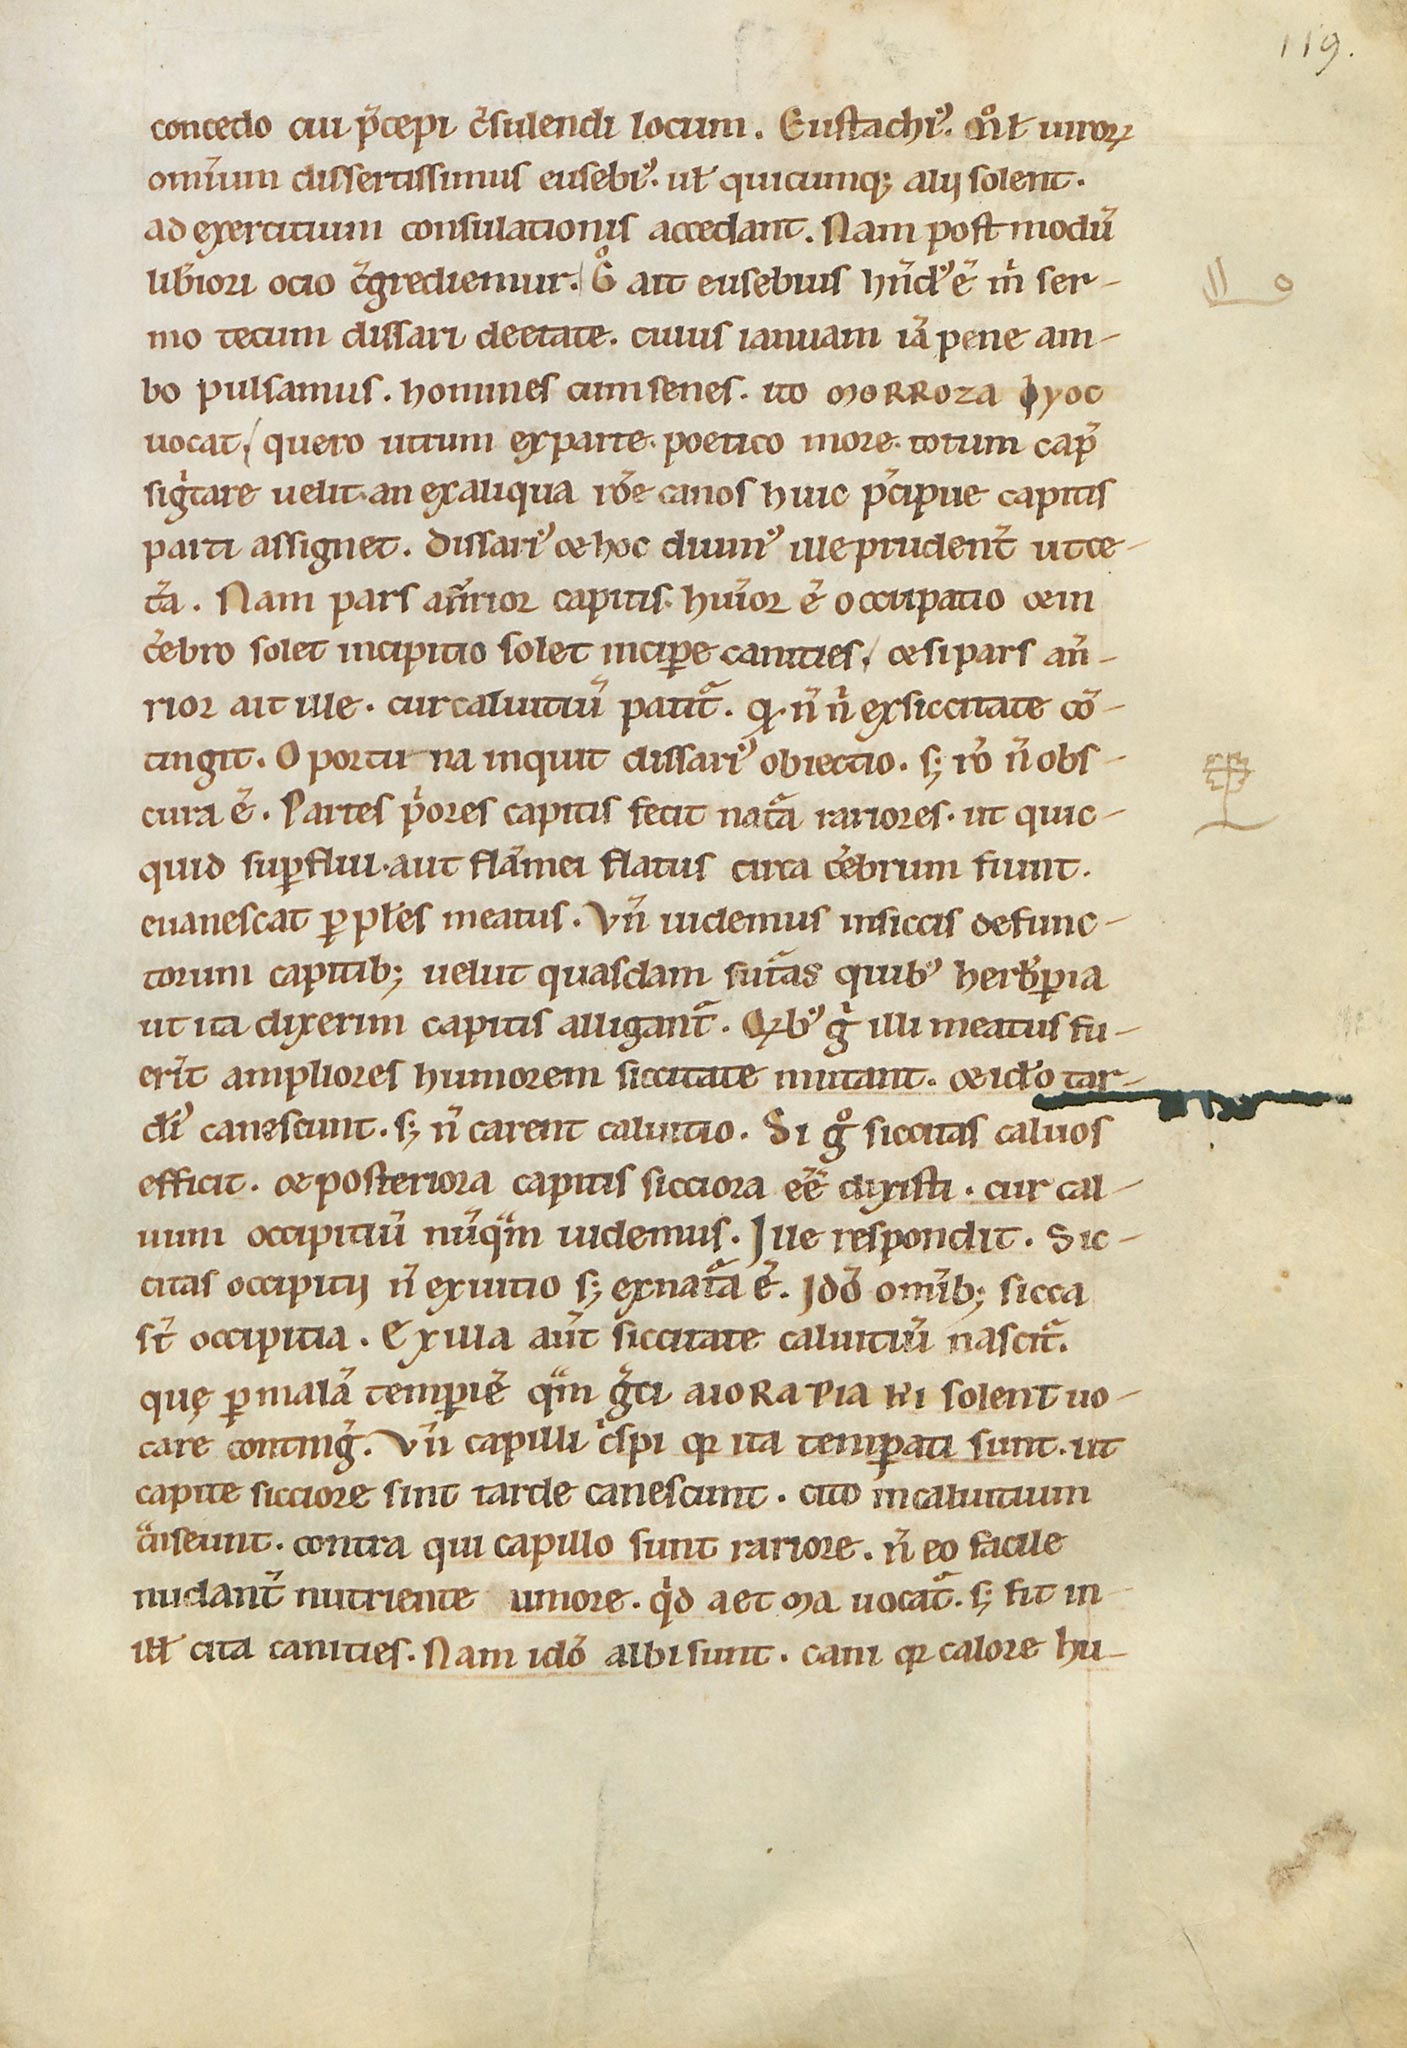 119.
concedo cui p̄cepi c̄sulendi locum. Eustachiꝰ. m̊ł uirorꝝ
omīum dissertissimus eusebiꝰ. uł quicumq; alij solent.
ad exertitium consulationis accedant. Nam postmodū
lib̄iori ocio c̄grediemur. G̊ ait eusebius hn̄dꝰ ē m̄ ser-
mo tecum dissari deetate. cuius ianuam iā pene am-
bo pulsamus. homines cum senes. ito moRRoza ϕyoc
uocat, quero utrum exparte. poetico more. totum cap̄
siḡtare uelit. an exaliqua rōe canos huic p̄cipue capitis
parti assignet. Dissariꝰ & hoc diuinꝰ ille prudent̄ ut ce-
t̄a. Nam pars an̄rior capitis. hum̄ior ē occupatio & in
c̄ebro solet incipitio solet incip̄e canities, & si pars an̄-
rior ait ille. cur caluitiū patit᷑. q. n̄ n̄ exsiccitate cō-
tingit. Oportu na inquit dissariꝰ obiectio. s; rō n̄ obs-
cura ē. Partes p̄ores capitis fecit nat᷑a rariores. ut quic-
quid sup̄flui. aut flām̄ei flatus circa c̄ebrum fiunt.
euanescat ꝑ płes meatus. Vn̄ uidemus insiccis defunc-
torum capitib; uelut quasdam sut᷑as quibꝰ hemisp̄ia
ut ita dixerim capitis alligant᷑. Qꝫbꝰ g̊ illi meatus fu-
erīt ampliores humorem siccitate mutant. & id̄o tar-
diꝰ canescunt. s; n̄ carent caluitio. Si g̊ siccitas caluos
efficit. & posteriora capitis sicciora eē dixisti. cur cal-
uum occipitiū nūqᵃm uidemus. Ille respondit. Sic-
citas occipitij n̄ exuitio s; exnat᷑a ē. Idō omīb; sicca
st̄ occipitia. Exilla aūt siccitate caluitiū nascit᷑.
quę ꝑ malā temp̄iē qᵃm g̅ci aioRaPia Ki solent uo-
care conting̅. Vn̄ capilli c̍spi qꝛ ita temp̄ati sunt. ut
capite sicciore sint tarde canescunt. cito incaluitium
t᷑nseunt. contra qui capillo sunt rariore. n̄ eo facile
nudant̄ nutriente umore. q̍d aet ma uocat᷑. s; fit in
illł cita canities. Nam idō albi sunt. cani qꝛ calore hu-